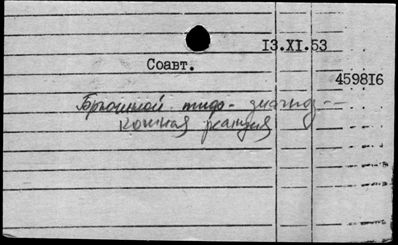 13.XI.53
Соавт.
459816
Брюшной тиф - диагноз -
кожная реакция